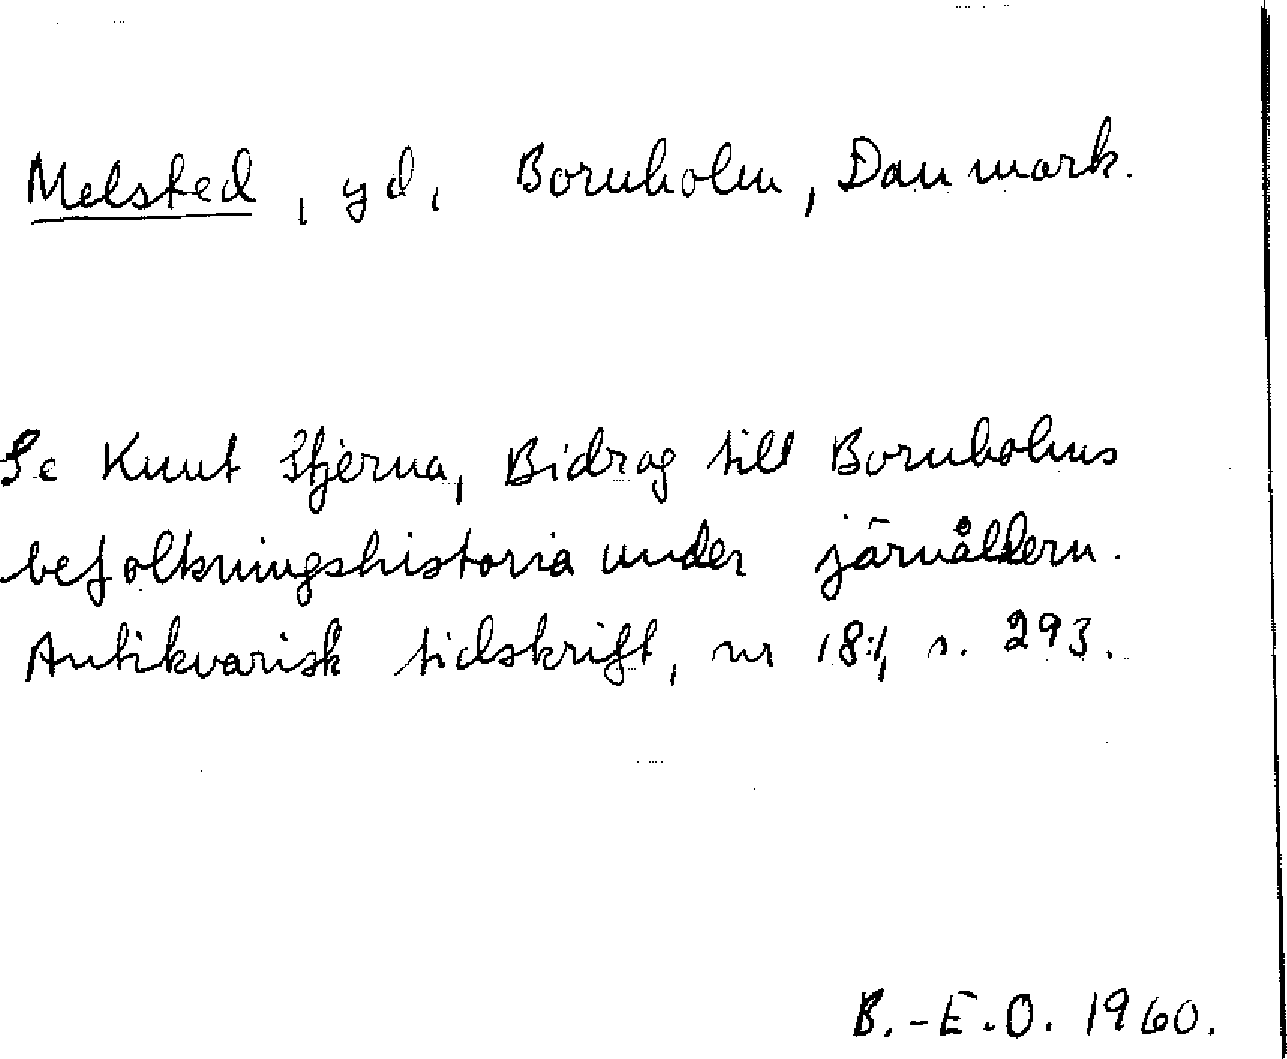 Melsted, yd, Bornholm, Danmark.
Se Knut Stjerna, Bidrag till Bornholms
befolkningshistoria under järnåldern.
Antikvarisk tidskrift, nr 18:1, s. 293.
B.-E.O. 1960.